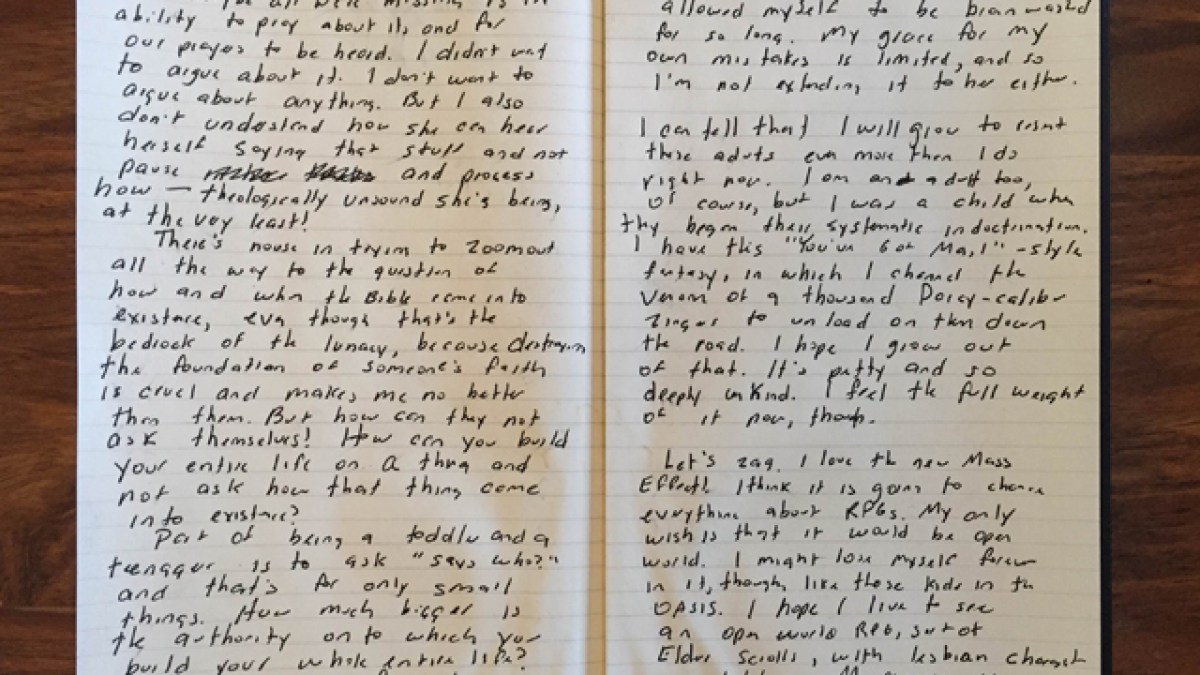 ability to pray about it, and for
our prayers to be heard. I didn't want
to argue about it. I don't want to
argue about anything. But I also
don't understand how she can hear
herself saying that stuff and not
pause and process
how — theologically unsound she's being,
at the very least!
There's no use in trying to zoom out
all the way to the question of
how and when the Bible came into
existence, even though that's the
bedrock of the lunacy, because destroying
the foundation of someone's faith
is cruel and makes me no better
than them. But how can they not
ask themselves! How can you build
your entire life on a thing and
not ask how that thing came
into existence?
Part of being a toddler and a
teenager is to ask "says who?"
and that's for only small
things. How much bigger is
the authority on to which you
build your whole entire life?
allowed myself to be brainwashed
for so long. My grace for my
own mistakes is limited, and so
I'm not extending it to her either.
I can tell that I will grow to resent
these adults even more than I do
right now. I am an adult too,
of course, but I was a child when
they began their systematic indoctrination.
I have this "You've Got Mail"-style
fantasy, in which I channel the
venom of a thousand Darcy-caliber
zingers to unload on them down
the road. I hope I grow out
of that. It's petty and so
deeply unkind. I feel the full weight
of it now, though.
Let's zag. I love the new Mass
Effect! I think it is going to change
everything about RPGs. My only
wish is that it would be open
world. I might lose myself forever
in it, though, like those kids in the
OASIS. I hope I live to see
an open world RPG, sort of
Elder Scrolls, with lesbian character